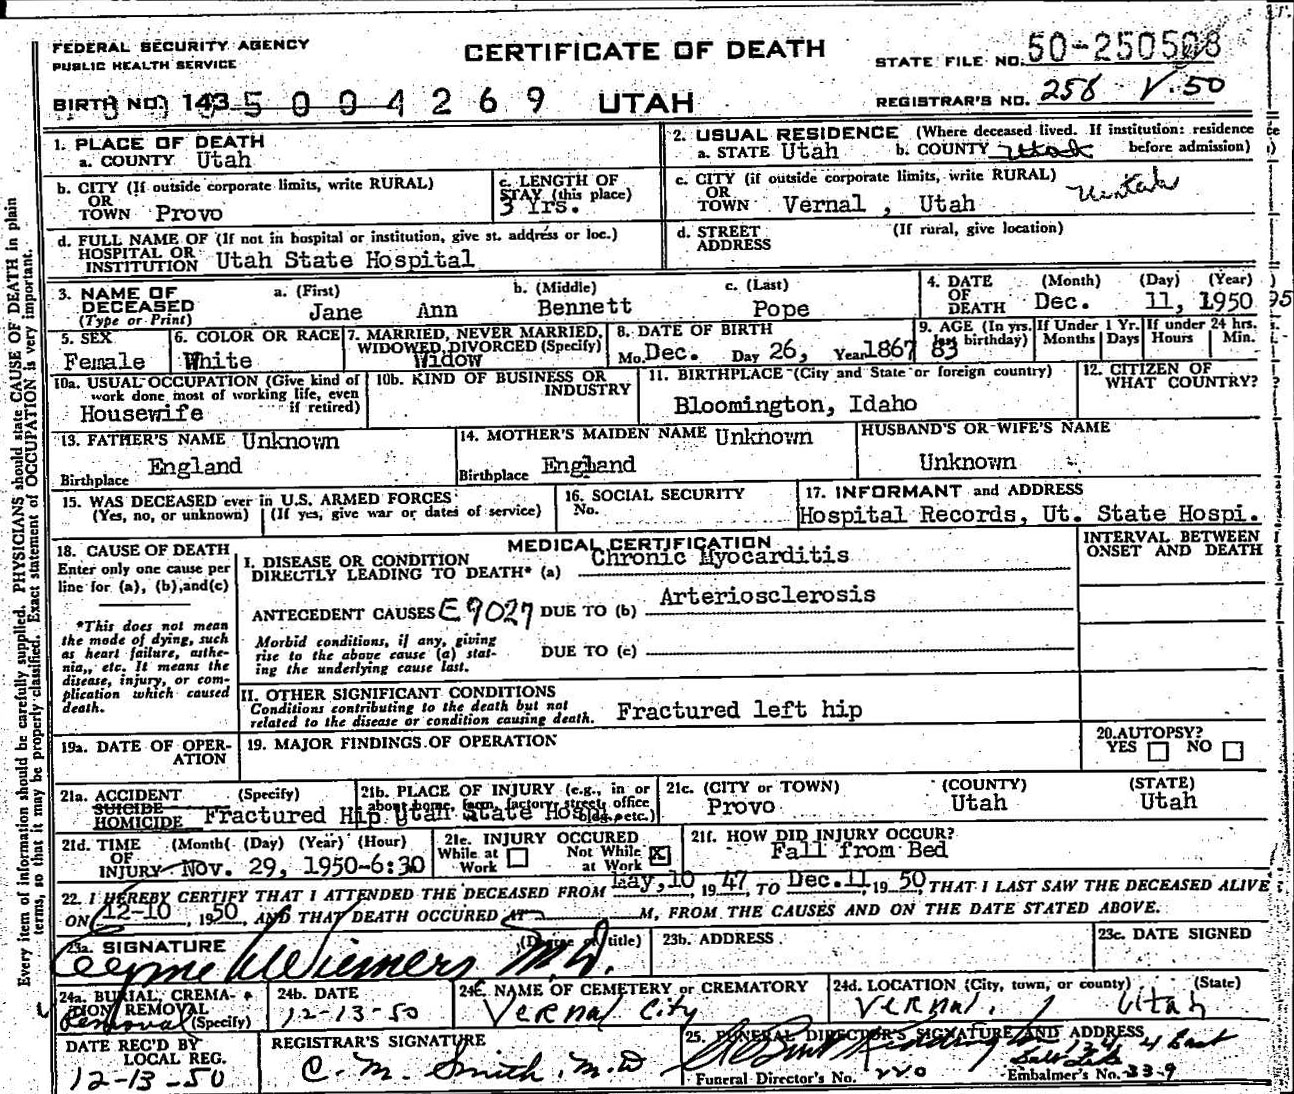 FEDERAL SECURITY AGENCY
PUBLIC HEALTH SERVICE
CERTIFICATE OF DEATH
STATE FILE NO. 50-250508
BIRTH NO. 143 5004269 UTAH
REGISTRAR'S NO. 256 V.50
1. PLACE OF DEATH
a. COUNTY Utah
2. USUAL RESIDENCE (Where deceased lived. If institution: residence before admission)
a. STATE Utah b. COUNTY Utah
b. CITY (If outside corporate limits, write RURAL)
OR
TOWN Provo
c. LENGTH OF
STAY (this place)
3 Yrs.
c. CITY (if outside corporate limits, write RURAL)
OR
TOWN Vernal, Utah
Uintah
d. FULL NAME OF (If not in hospital or institution, give st. address or loc.)
HOSPITAL OR
INSTITUTION Utah State Hospital
d. STREET (If rural, give location)
ADDRESS
3. NAME OF
DECEASED
(Type or Print)
a. (First) b. (Middle) c. (Last)
Jane Ann Bennett Pope
4. DATE (Month) (Day) (Year)
OF
DEATH Dec. 11, 1950
5. SEX
Female
6. COLOR OR RACE
White
7. MARRIED, NEVER MARRIED,
WIDOWED, DIVORCED (Specify)
Widow
8. DATE OF BIRTH
Mo. Dec. Day 26, Year 1867
9. AGE (In yrs. last birthday)
83
If Under 1 Yr.
Months Days
If under 24 hrs.
Hours Min.
10a. USUAL OCCUPATION (Give kind of
work done most of working life, even
if retired)
Housewife
10b. KIND OF BUSINESS OR
INDUSTRY
11. BIRTHPLACE (City and State or foreign country)
Bloomington, Idaho
12. CITIZEN OF
WHAT COUNTRY?
13. FATHER'S NAME Unknown
Birthplace England
14. MOTHER'S MAIDEN NAME Unknown
Birthplace England
HUSBAND'S OR WIFE'S NAME
Unknown
15. WAS DECEASED ever in U.S. ARMED FORCES
(Yes, no, or unknown) (If yes, give war or dates of service)
16. SOCIAL SECURITY
No.
17. INFORMANT and ADDRESS
Hospital Records, Ut. State Hospi.
18. CAUSE OF DEATH
Enter only one cause per
line for (a), (b), and (c)
*This does not mean
the mode of dying, such
as heart failure, asthe-
nia,, etc. It means the
disease, injury, or com-
plication which caused
death.
MEDICAL CERTIFICATION
INTERVAL BETWEEN
ONSET AND DEATH
I. DISEASE OR CONDITION
DIRECTLY LEADING TO DEATH* (a) Chronic Myocarditis
ANTECEDENT CAUSES E9027 DUE TO (b) Arteriosclerosis
Morbid conditions, if any, giving
rise to the above cause (a) stat-
ing the underlying cause last.
DUE TO (c)
II. OTHER SIGNIFICANT CONDITIONS
Conditions contributing to the death but not
related to the disease or condition causing death.
Fractured left hip
19a. DATE OF OPER-
ATION
19. MAJOR FINDINGS OF OPERATION
20. AUTOPSY?
YES NO
21a. ACCIDENT (Specify)
SUICIDE
HOMICIDE Fractured Hip
21b. PLACE OF INJURY (e.g., in or
about home, farm, factory, street, office
bldg., etc.)
Utah State Hospi
21c. (CITY or TOWN) (COUNTY) (STATE)
Provo Utah Utah
21d. TIME (Month) (Day) (Year) (Hour)
OF
INJURY Nov. 29, 1950-6:30
21e. INJURY OCCURED
While at Work Not While at Work X
21f. HOW DID INJURY OCCUR?
Fall from Bed
22. I HEREBY CERTIFY THAT I ATTENDED THE DECEASED FROM May, 10, 1947, TO Dec. 11, 1950, THAT I LAST SAW THE DECEASED ALIVE
ON 12-10, 1950, AND THAT DEATH OCCURED AT M, FROM THE CAUSES AND ON THE DATE STATED ABOVE.
23a. SIGNATURE (Degree or title)
Wiemers M.D.
23b. ADDRESS
23c. DATE SIGNED
24a. BURIAL, CREMA-
TION REMOVAL
(Specify)
Removal
24b. DATE
12-13-50
24c. NAME OF CEMETERY or CREMATORY
Vernal City
24d. LOCATION (City, town, or county) (State)
Vernal, Utah
DATE REC'D BY
LOCAL REG.
12-13-50
REGISTRAR'S SIGNATURE
C. M. Smith, M.D
25. FUNERAL DIRECTOR'S SIGNATURE AND ADDRESS
4 East
Salt Lake
Funeral Director's No. 220
Embalmer's No. 339
Every item of information should be carefully supplied. PHYSICIANS should state CAUSE OF DEATH in plain
terms, so that it may be properly classified. Exact statement of OCCUPATION is very important.